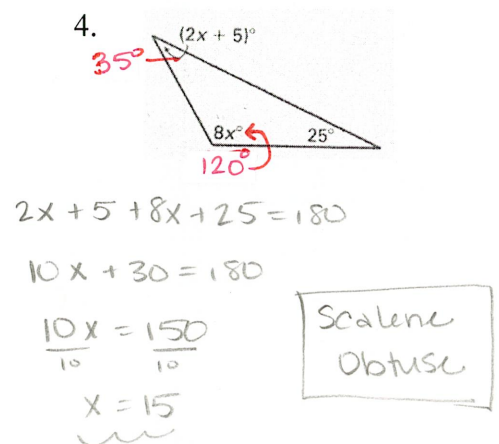 4.
(2x + 5)°
35°
8x°
25°
120°
2x + 5 + 8x + 25 = 180
10x + 30 = 180
10x = 150
10 10
x = 15
Scalene
Obtuse